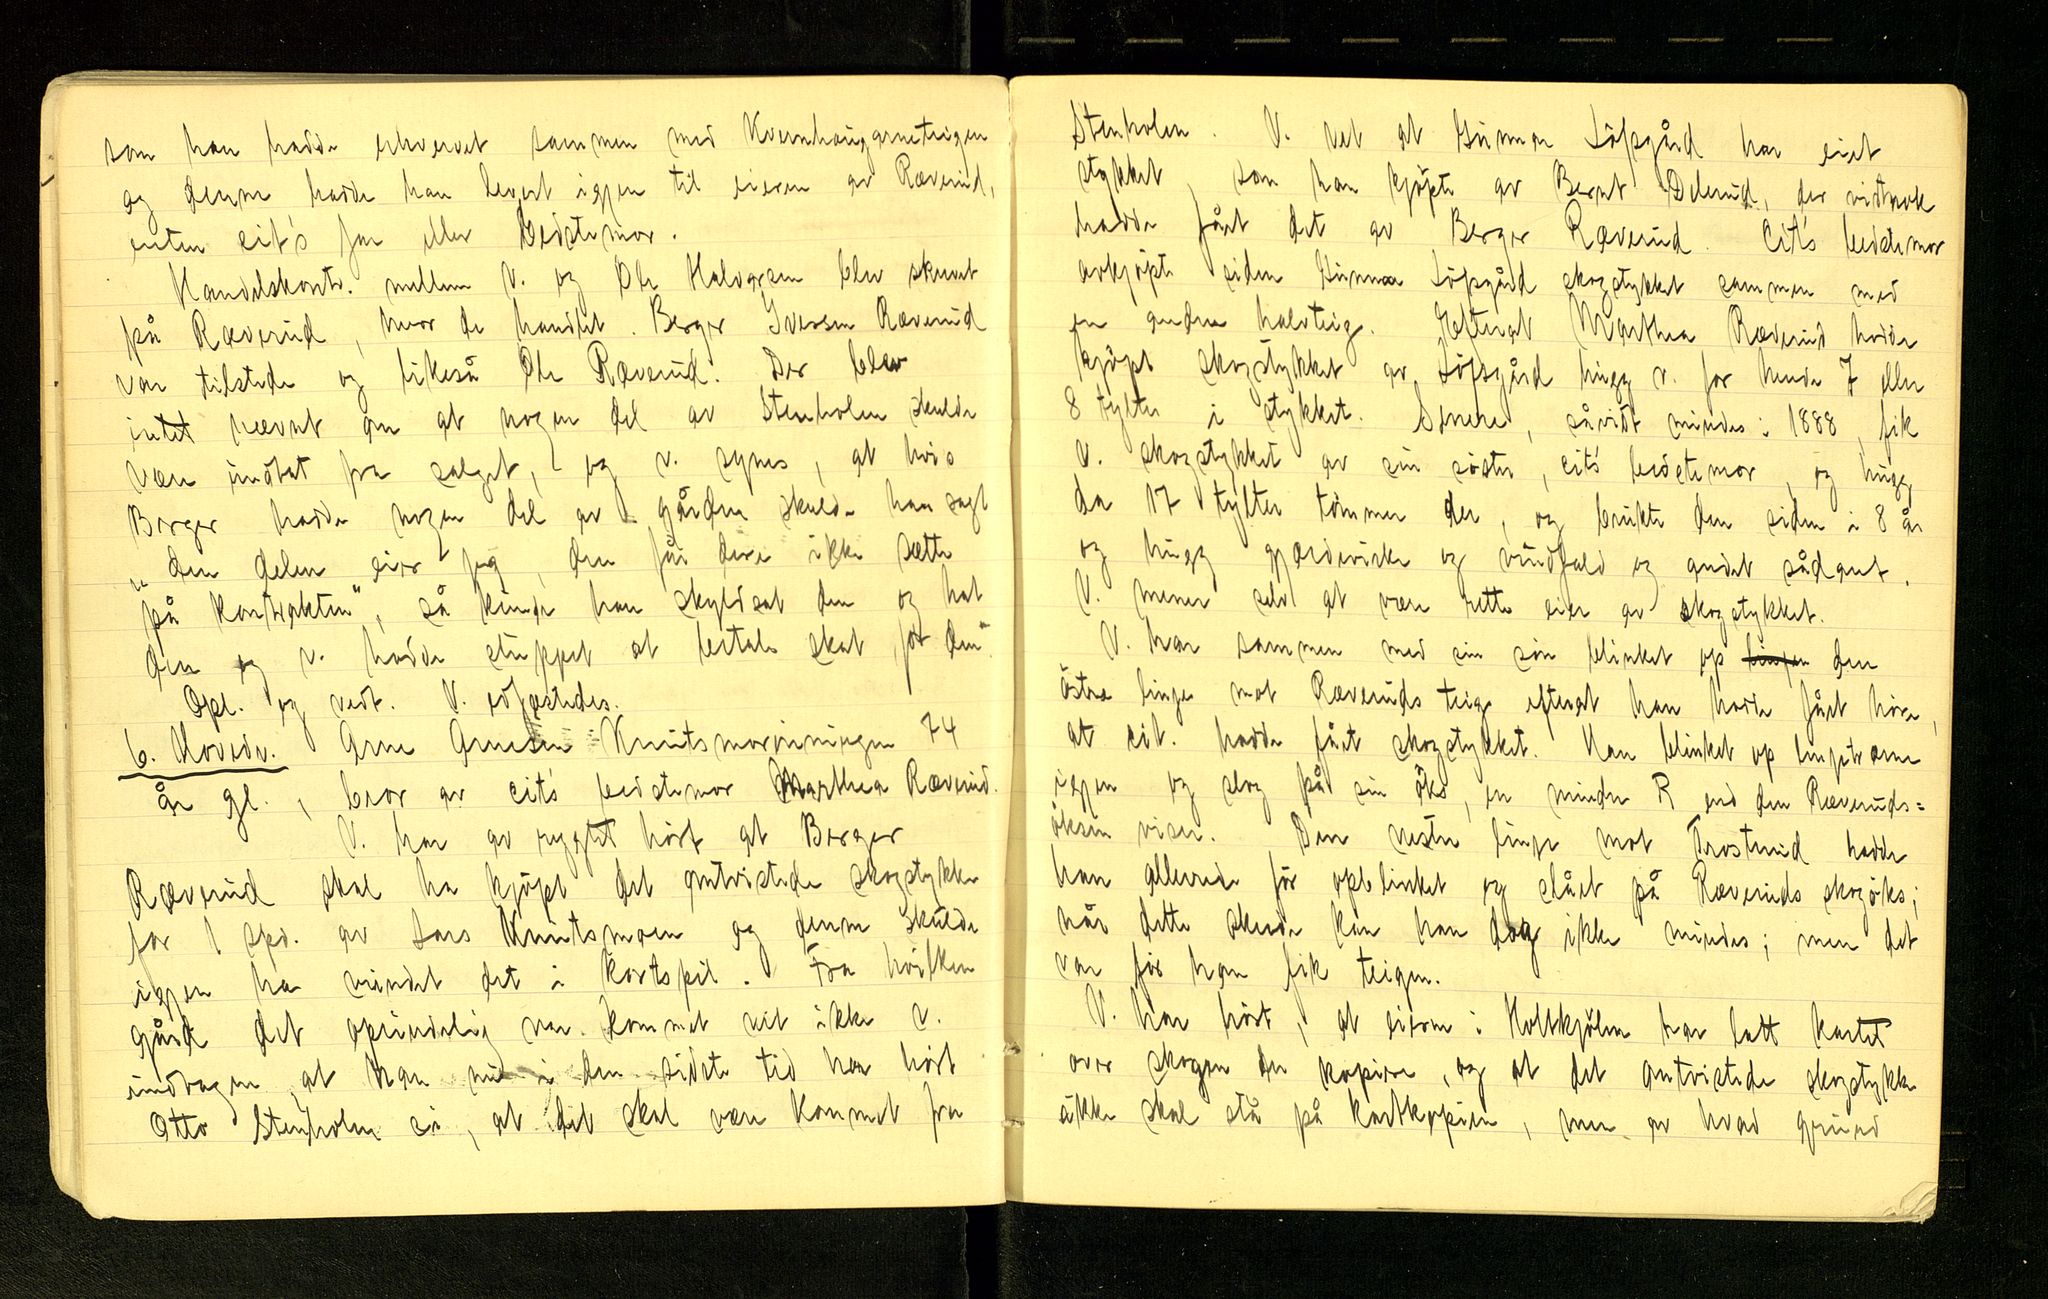 som han hadde erhvervet sammen med Kvernhaugarneteigen
og denne hadde han levert igjen til eieren av Ræverud,
enten cit's far eller bedstemor.
Handelskontr. mellem V. og Ole Halvorsen blev skrevet
på Ræverud, hvor de handlet. Berger Iversen Ræverud
var tilstede og likeså Ole Ræverud. Der blev
intet nævnt om at nogen del av Stenholen skulde
være undtat fra salget, og v. synes, at hvis
Berger hadde nogen del av gården skulde han sagt
"den delen eier jeg, den får dere ikke sætte
på kontrakten", så kunde han skyldsat den og hat
den og v. hadde sluppet at betale skat for den".
Opl. og vedt. V. edfæstedes.
6. Hovedv. Arne Arnesen Knutsmorønningen 74
år gl., bror av cit's bedstemor Marthea Ræverud.
V. har av rygtet hørt at Berger
Ræverud skal ha kjøpt det omtvistede skogstykke
for 1 spd. av Lars Knutsmoen og denne skulde
igjen ha vundet det i kortspil. Fra hvilken
gård det oprindelig var kommet vet ikke v.
undtagen at han nu i den sidste tid har hørt
Otto Stenholen si, at det skal være kommet fra
Stenholen. V. vet at Gunnar Löfsgård har eiet
stykket, som han kjøpte av Bernt Delerud, der vistnok
hadde fået det av Berger Ræverud. Cit's bedstemor
avkjøpte siden Gunnar Löfsgård skogstykket sammen med
en anden halvteig. Efterat Marthea Ræverud hadde
kjøpt skogstykket av Löfsgård hugg v. for hende 7 eller
8 tylter i stykket. Senere, såvidt mindes i 1888, fik
V. skogstykket av sin søster, cit's bedstemor, og hugg
da 17 tylter tømmer der, og brukte den siden i 8 år
og hugg gjærdevirke og vindfald og andet sådant.
V. mener selv at være rette eier av skogstykket.
V. har sammen med sin søn blinket op linjen den
østre linje mot Ræveruds teig efterat han hadde fått høre,
at cit. hadde fået skogstykket. Han blinket op linjetrærne
igjen og slog på sin øks, en mindre R end den Ræveruds=
øksen viser. Den vestre linje mot Trosterud hadde
han allerede før opblinket og slået på Ræveruds skogøks;
når dette skede kan han dog ikke mindes; men det
var før han fik teigen.
V. har hørt, at eieren i Holtkjølen har latt kartet
over skogen der kopiere, og at det omtvistede skogstykke
ikke skal stå på kartkopien, men av hvad grund